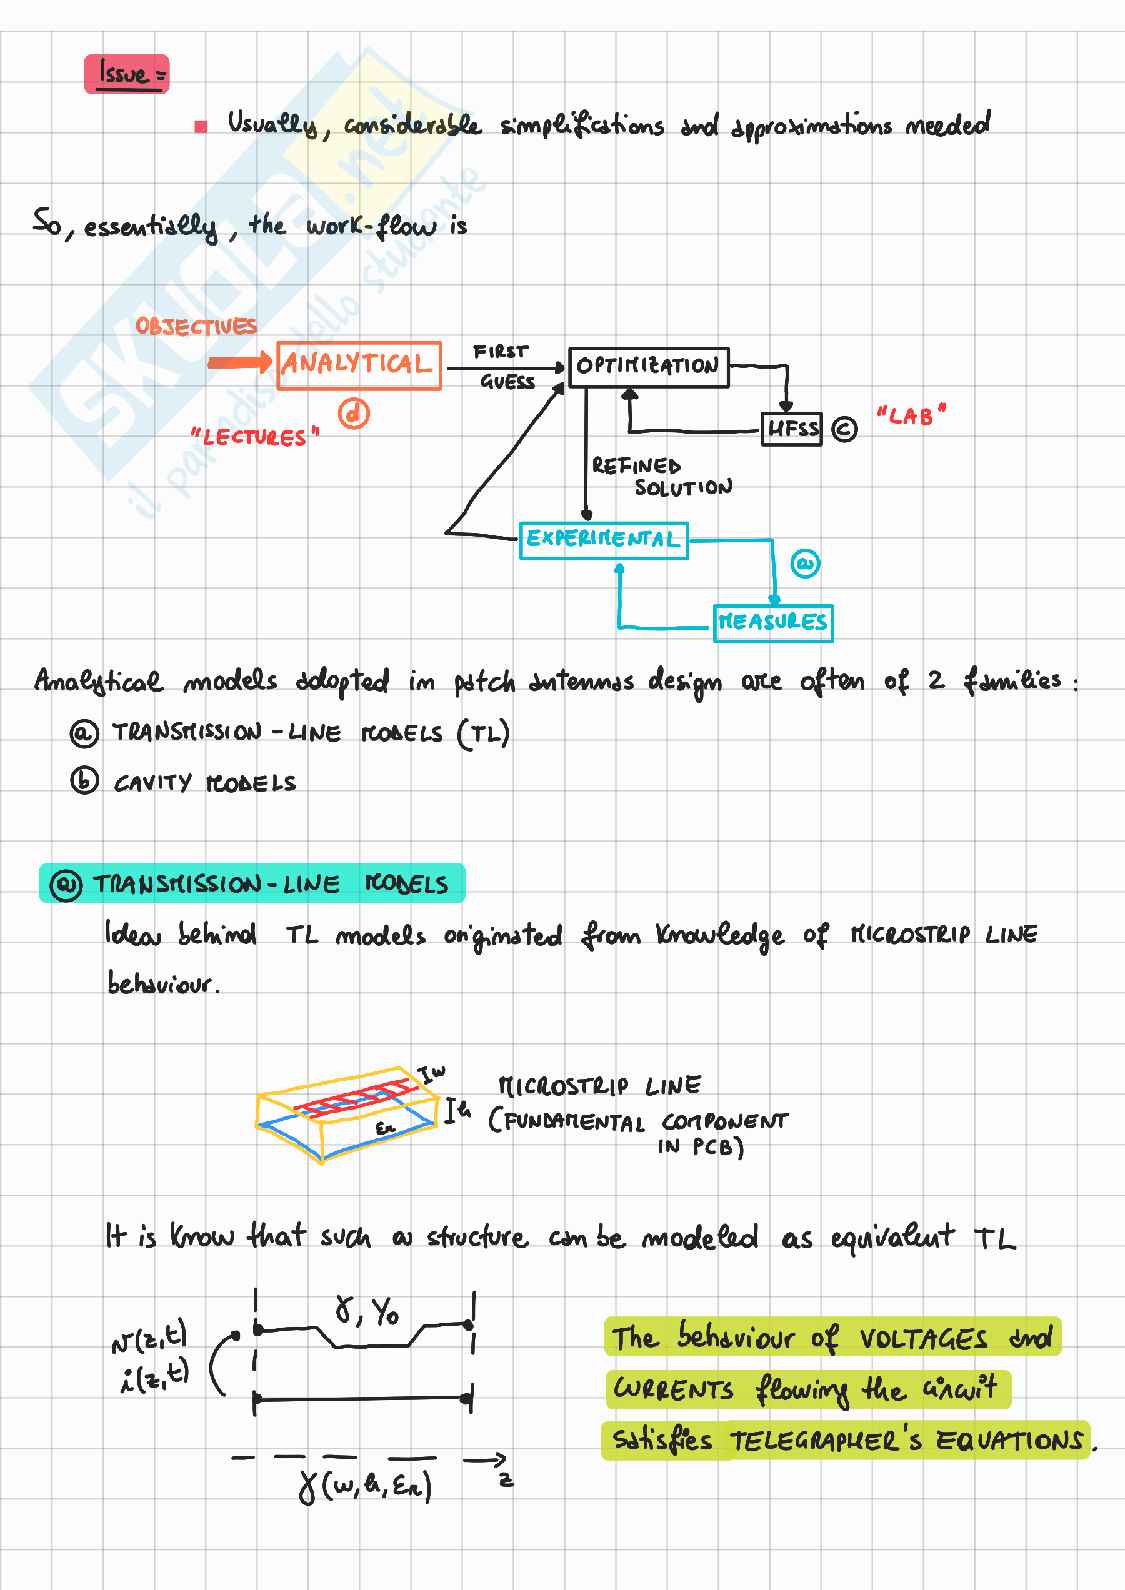 Issue =
Usually, considerable simplifications and approximations needed
So, essentially, the work-flow is
OBJECTIVES
ANALYTICAL
FIRST
GUESS
OPTIMIZATION
"LECTURES"
d
HFSS
c
"LAB"
REFINED
SOLUTION
EXPERIMENTAL
a
MEASURES
Analytical models adopted in patch antennas design are often of 2 families:
a TRANSMISSION-LINE MODELS (TL)
b CAVITY MODELS
a TRANSMISSION-LINE MODELS
Idea behind TL models originated from knowledge of MICROSTRIP LINE
behaviour.
w
h
εr
MICROSTRIP LINE
(FUNDAMENTAL COMPONENT
IN PCB)
It is know that such a structure can be modeled as equivalent TL
γ, Y0
v(z,t)
i(z,t)
z
γ(w, h, εr)
The behaviour of VOLTAGES and
CURRENTS flowing the circuit
satisfies TELEGRAPHER'S EQUATIONS.
SKUOLA.net
il paradiso dello studente